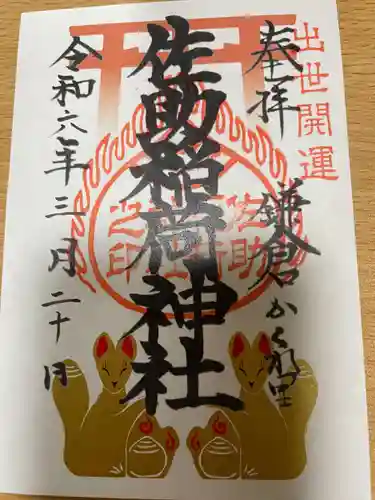 出世開運
奉拝 鎌倉かくれ里
佐助稲荷神社
令和六年三月二十日
佐助
之印